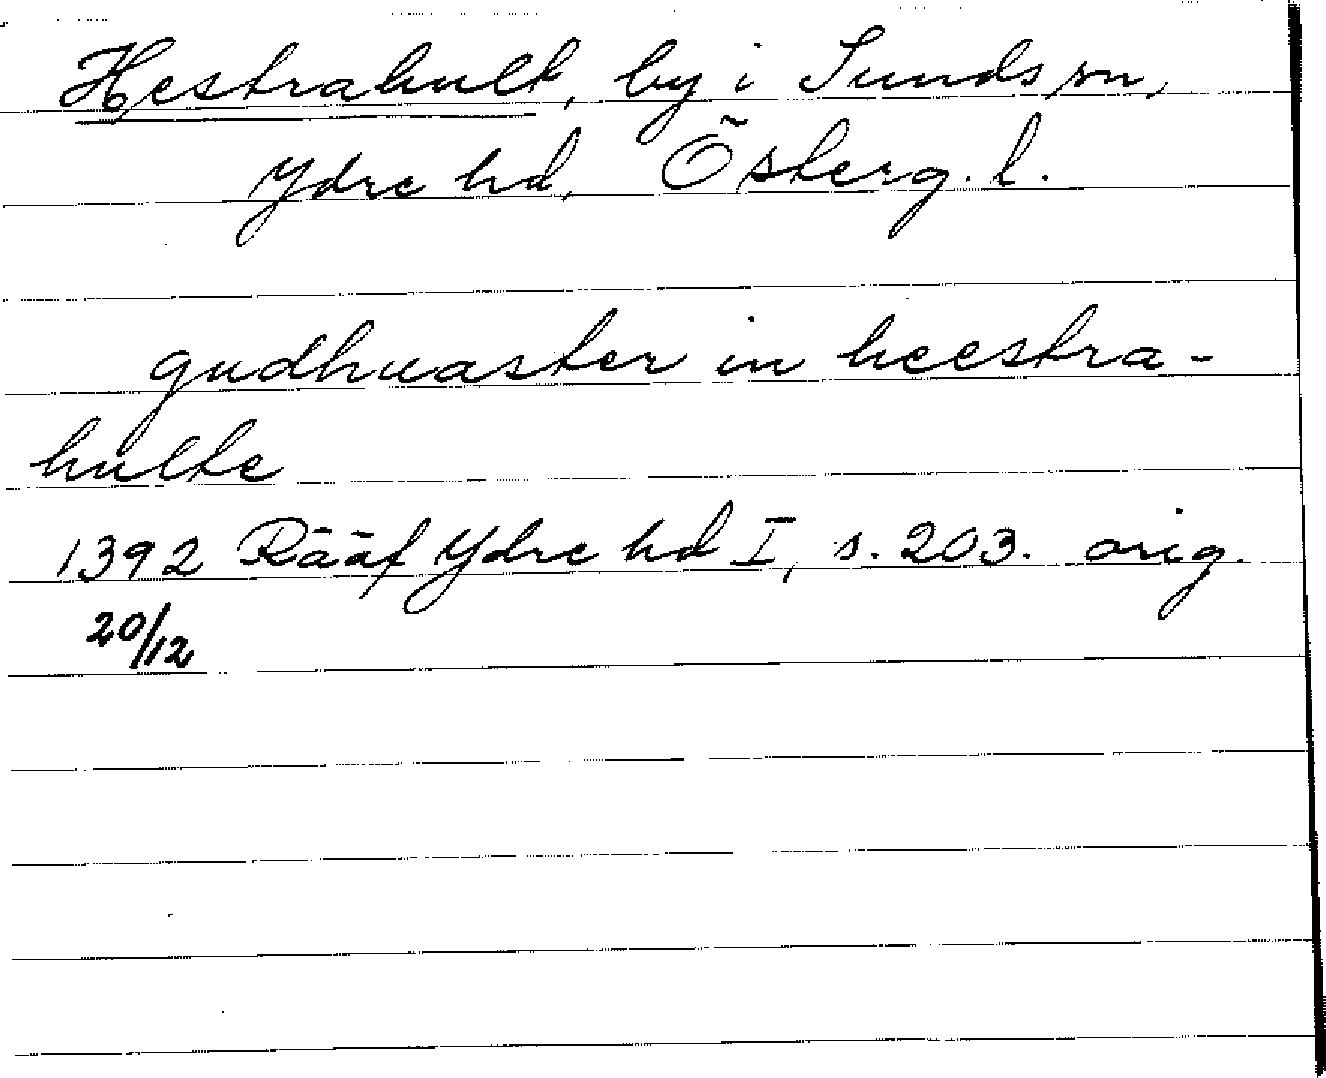 Hestrahult, by i Sunds sn,
Ydre hd, Österg. l.
gudhuaster in heestra-
hulte
1392 Rääf Ydre hd I, s. 203. orig.
20/12